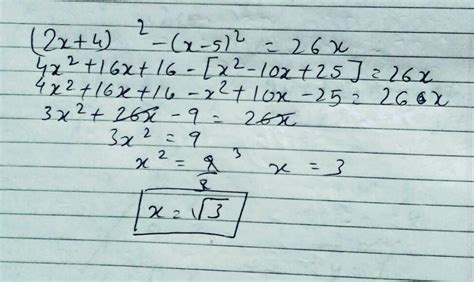 (2x+4)² -(x-5)² = 26x
4x²+16x+16 -[x²-10x+25]=26x
4x²+16x+16 -x²+10x -25=26x
3x²+26x -9 = 26x
3x² = 9
x² = 9/3 3 x = 3
x = √3